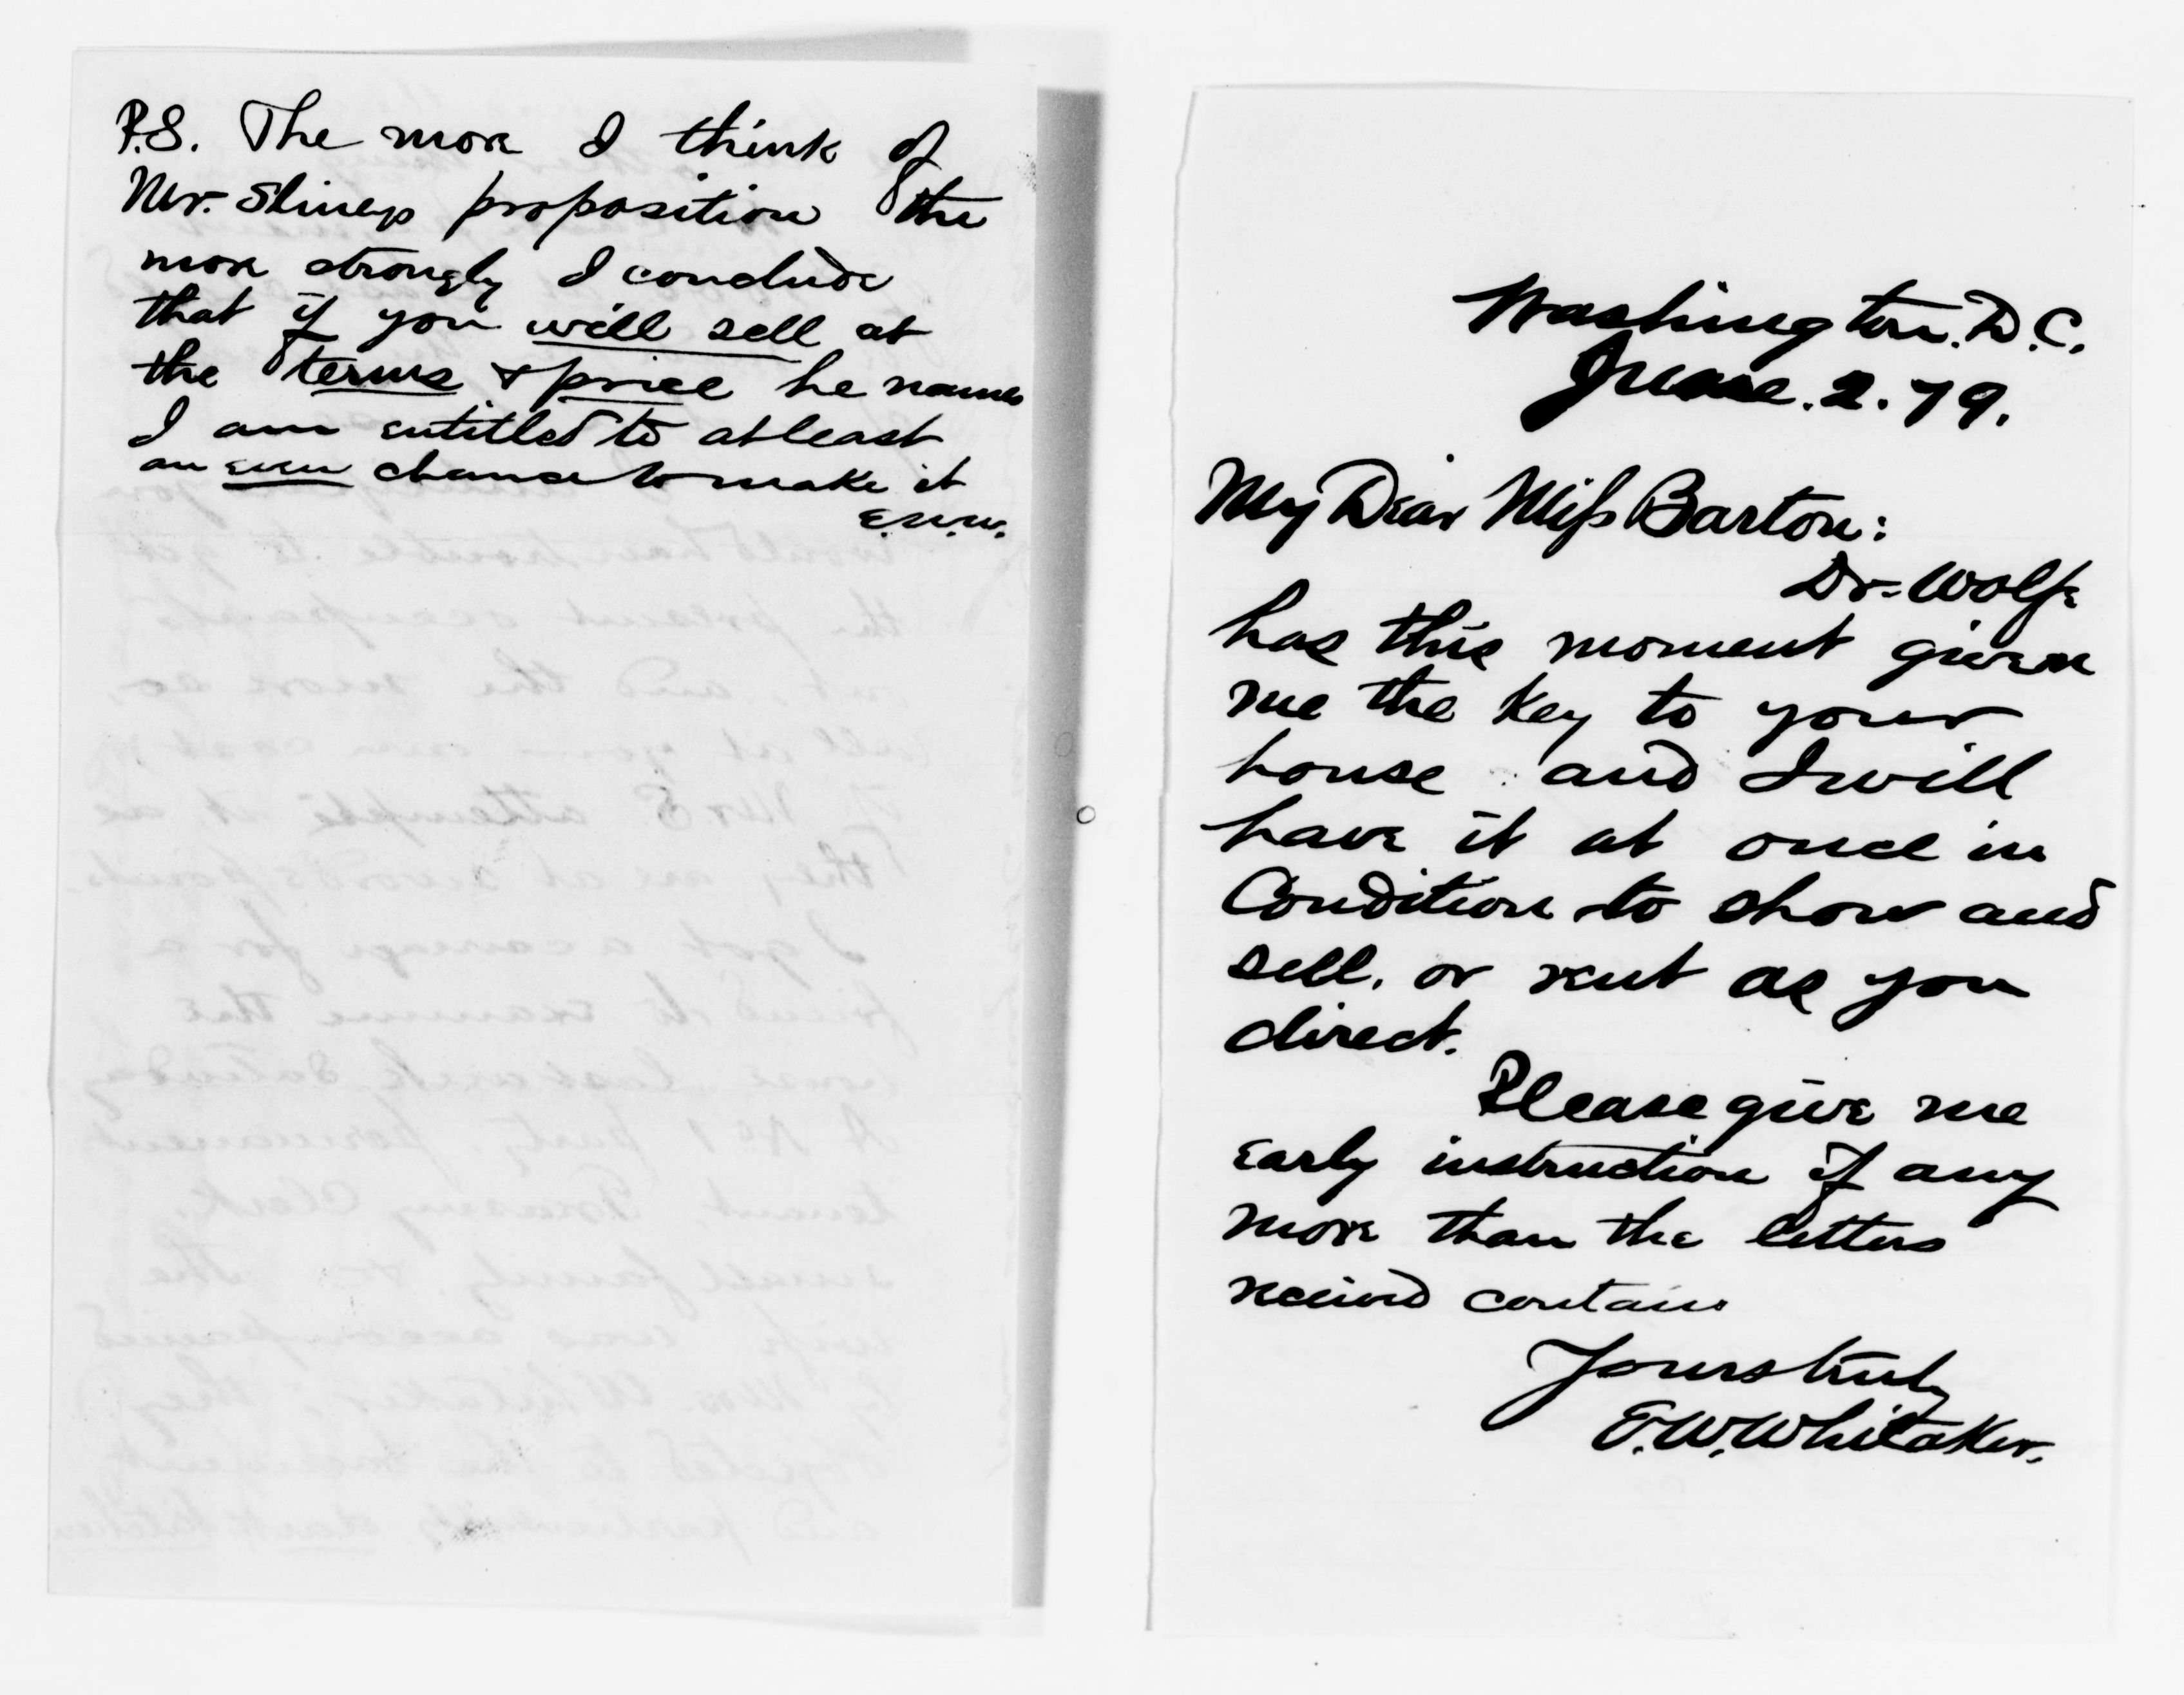 P.S. The more I think of
Mr. proposition the
more strongly I conclude
that if you will sell at
the terms & price he names
I am entitled to at least
an even chance to make it
E.W.W.
Washington. D.C.
June. 2. 79.
My Dear Miss Barton:
Dr. Wolfe
has this moment given
me the key to your
house and I will
have it at once in
Condition to show and
sell, or rent as you
direct.
Please give me
early instruction if any
more than the letters
received contains
Yours truly
E.W. Whitaker.